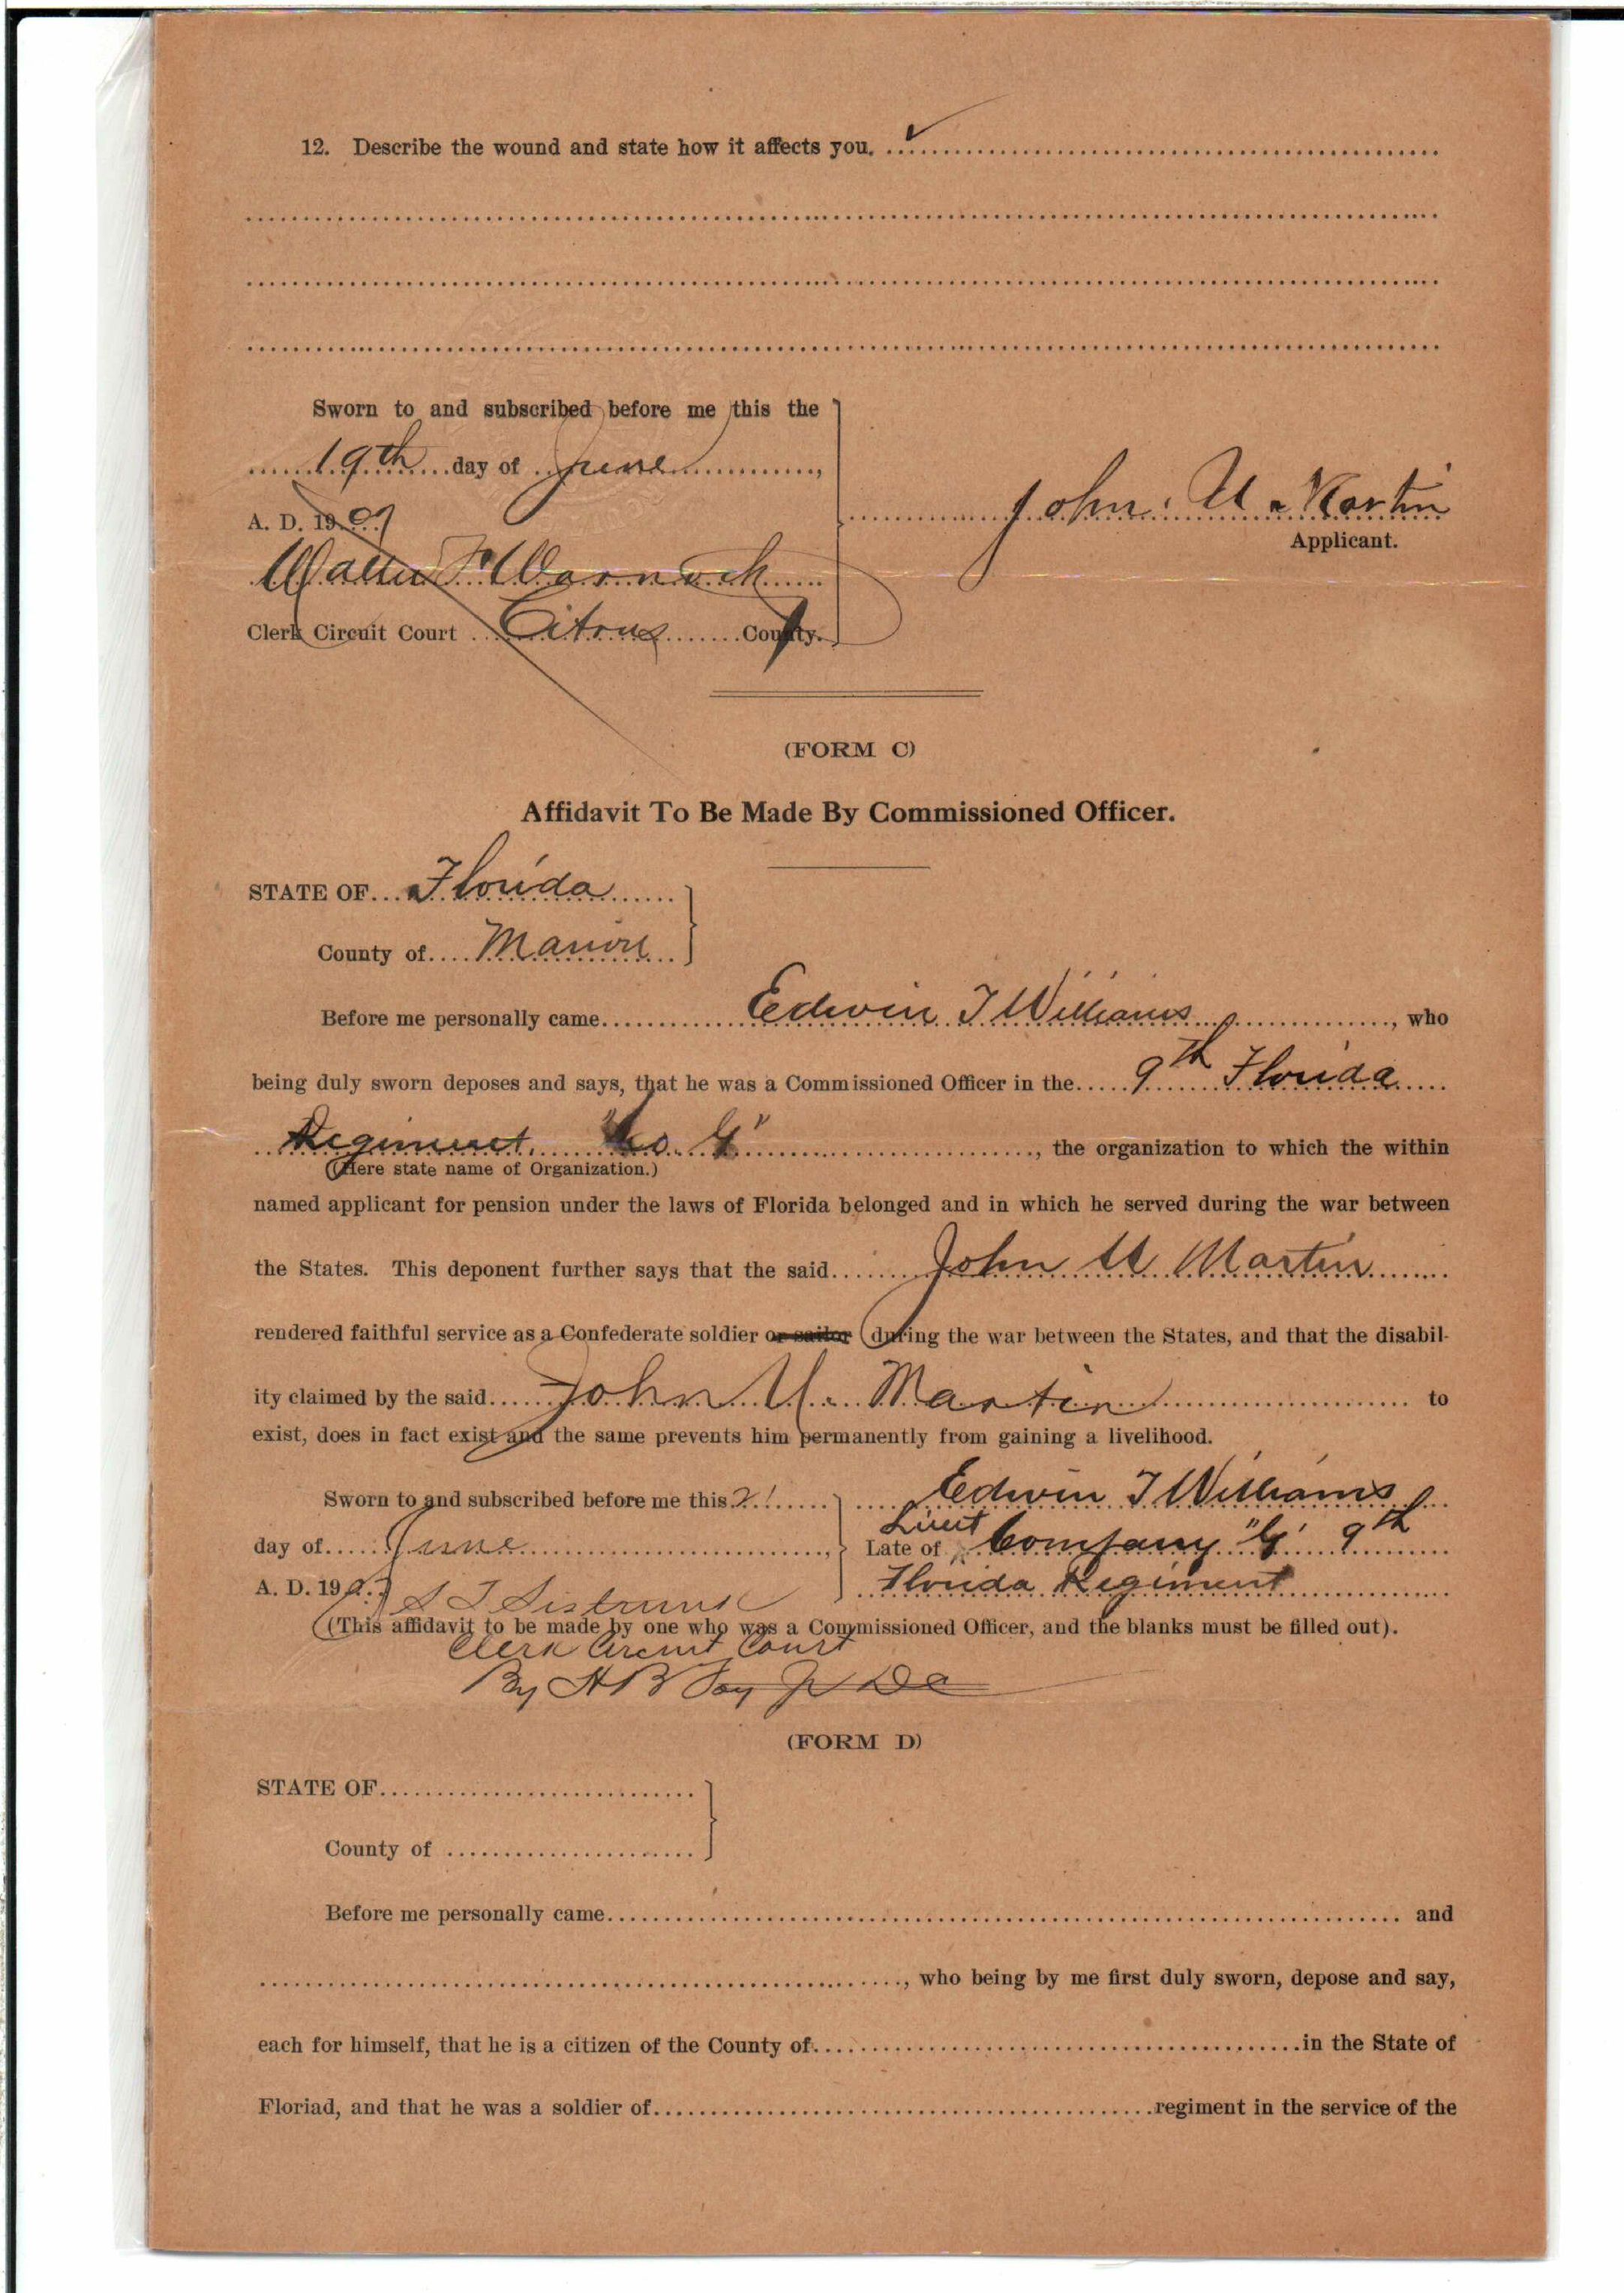 12. Describe the wound and state how it affects you.
Sworn to and subscribed before me this the
19th day of June,
A. D. 1907
John U Martin
Applicant.
Walter F Warnock
Clerk Circuit Court Citrus County.
(FORM C)
Affidavit To Be Made By Commissioned Officer.
STATE OF Florida
County of Marion
Before me personally came Edwin T Williams, who
being duly sworn deposes and says, that he was a Commissioned Officer in the 9th Florida
Regiment "Co G", the organization to which the within
(Here state name of Organization.)
named applicant for pension under the laws of Florida belonged and in which he served during the war between
the States. This deponent further says that the said John U Martin
rendered faithful service as a Confederate soldier or sailor during the war between the States, and that the disabil-
ity claimed by the said John U. Martin to
exist, does in fact exist and the same prevents him permanently from gaining a livelihood.
Sworn to and subscribed before me this 21 Edwin T Williams
day of June, Lieut
Late of Company "G" 9th
A. D. 1907 Florida Regiment
S T Sistrunk
(This affidavit to be made by one who was a Commissioned Officer, and the blanks must be filled out).
Clerk Circuit Court
By H B Jr DC
(FORM D)
STATE OF
County of
Before me personally came and
, who being by me first duly sworn, depose and say,
each for himself, that he is a citizen of the County of in the State of
Floriad, and that he was a soldier of regiment in the service of the